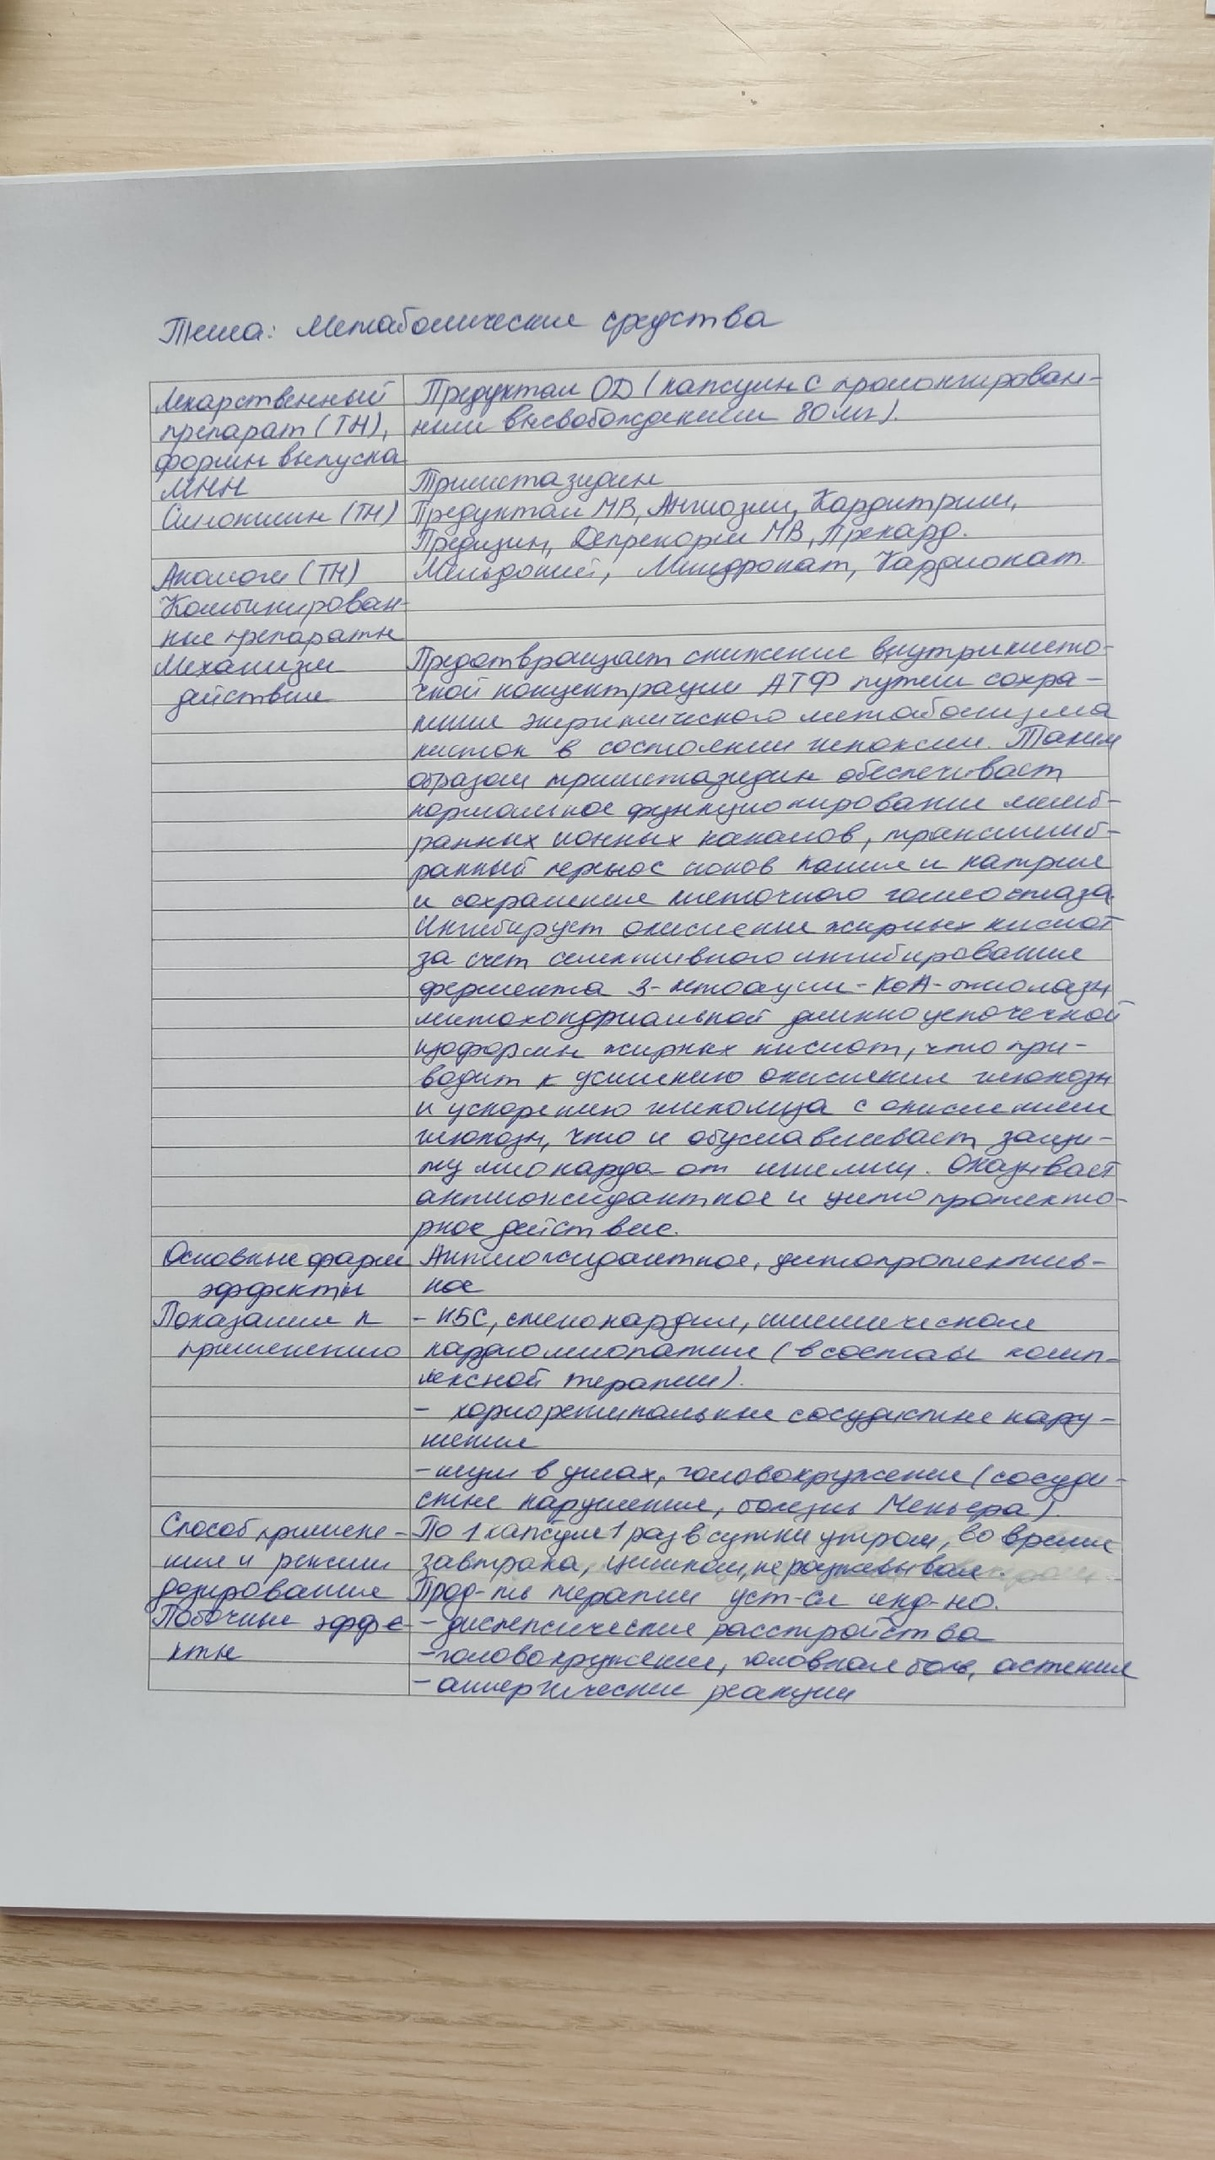 Тема: Метаболические средства
Лекарственный Предуктал ОД (капсулы с пролонгирован-
препарат (ТН), ным высвобождением 80 мг).
формы выпуска
МНН Триметазидин
Синонимы (ТН) Предуктал МВ, Ангиозил, Кардитрим,
Предизин, Депренорм МВ, Прекард.
Аналоги (ТН) Мельдоний, Милдронат, Кардионат.
Комбинирован-
ные препараты
Механизм Предотвращает снижение внутриклето-
действия чной концентрации АТФ путем сохра-
нения энергетического метаболизма
клеток в состоянии гипоксии. Таким
образом триметазидин обеспечивает
нормальное функционирование мемб-
ранных ионных каналов, трансмемб-
ранный перенос ионов калия и натрия
и сохранение клеточного гомеостаза.
Ингибирует окисление жирных кислот
за счет селективного ингибирования
фермента 3-кетоацил-КоА-тиолазы
митохондриальной длинноцепочечной
изоформы жирных кислот, что при-
водит к усилению окисления глюкозы
и ускорению гликолиза с окислением
глюкозы, что и обуславливает защи-
ту миокарда от ишемии. Оказывает
антиоксидантное и цитопротекто-
рное действие.
Основные фарм Антиоксидантное, цитопротектив-
эффекты ное
Показания к - ИБС, стенокардии, ишемическая
применению кардиомиопатия (в составе комп-
лексной терапии).
- хориоретинальные сосудистые нару-
шения
- шум в ушах, головокружение (сосуди-
стые нарушения, болезнь Меньера).
Способ примене- По 1 капсуле 1 раз в сутки утром, во время
ния и режим завтрака, целиком, не разжевывая
дозирования Прод-ть терапии уст-ся инд-но.
Побочные эффе- - диспепсические расстройства
кты - головокружение, головная боль, астения
- аллергические реакции